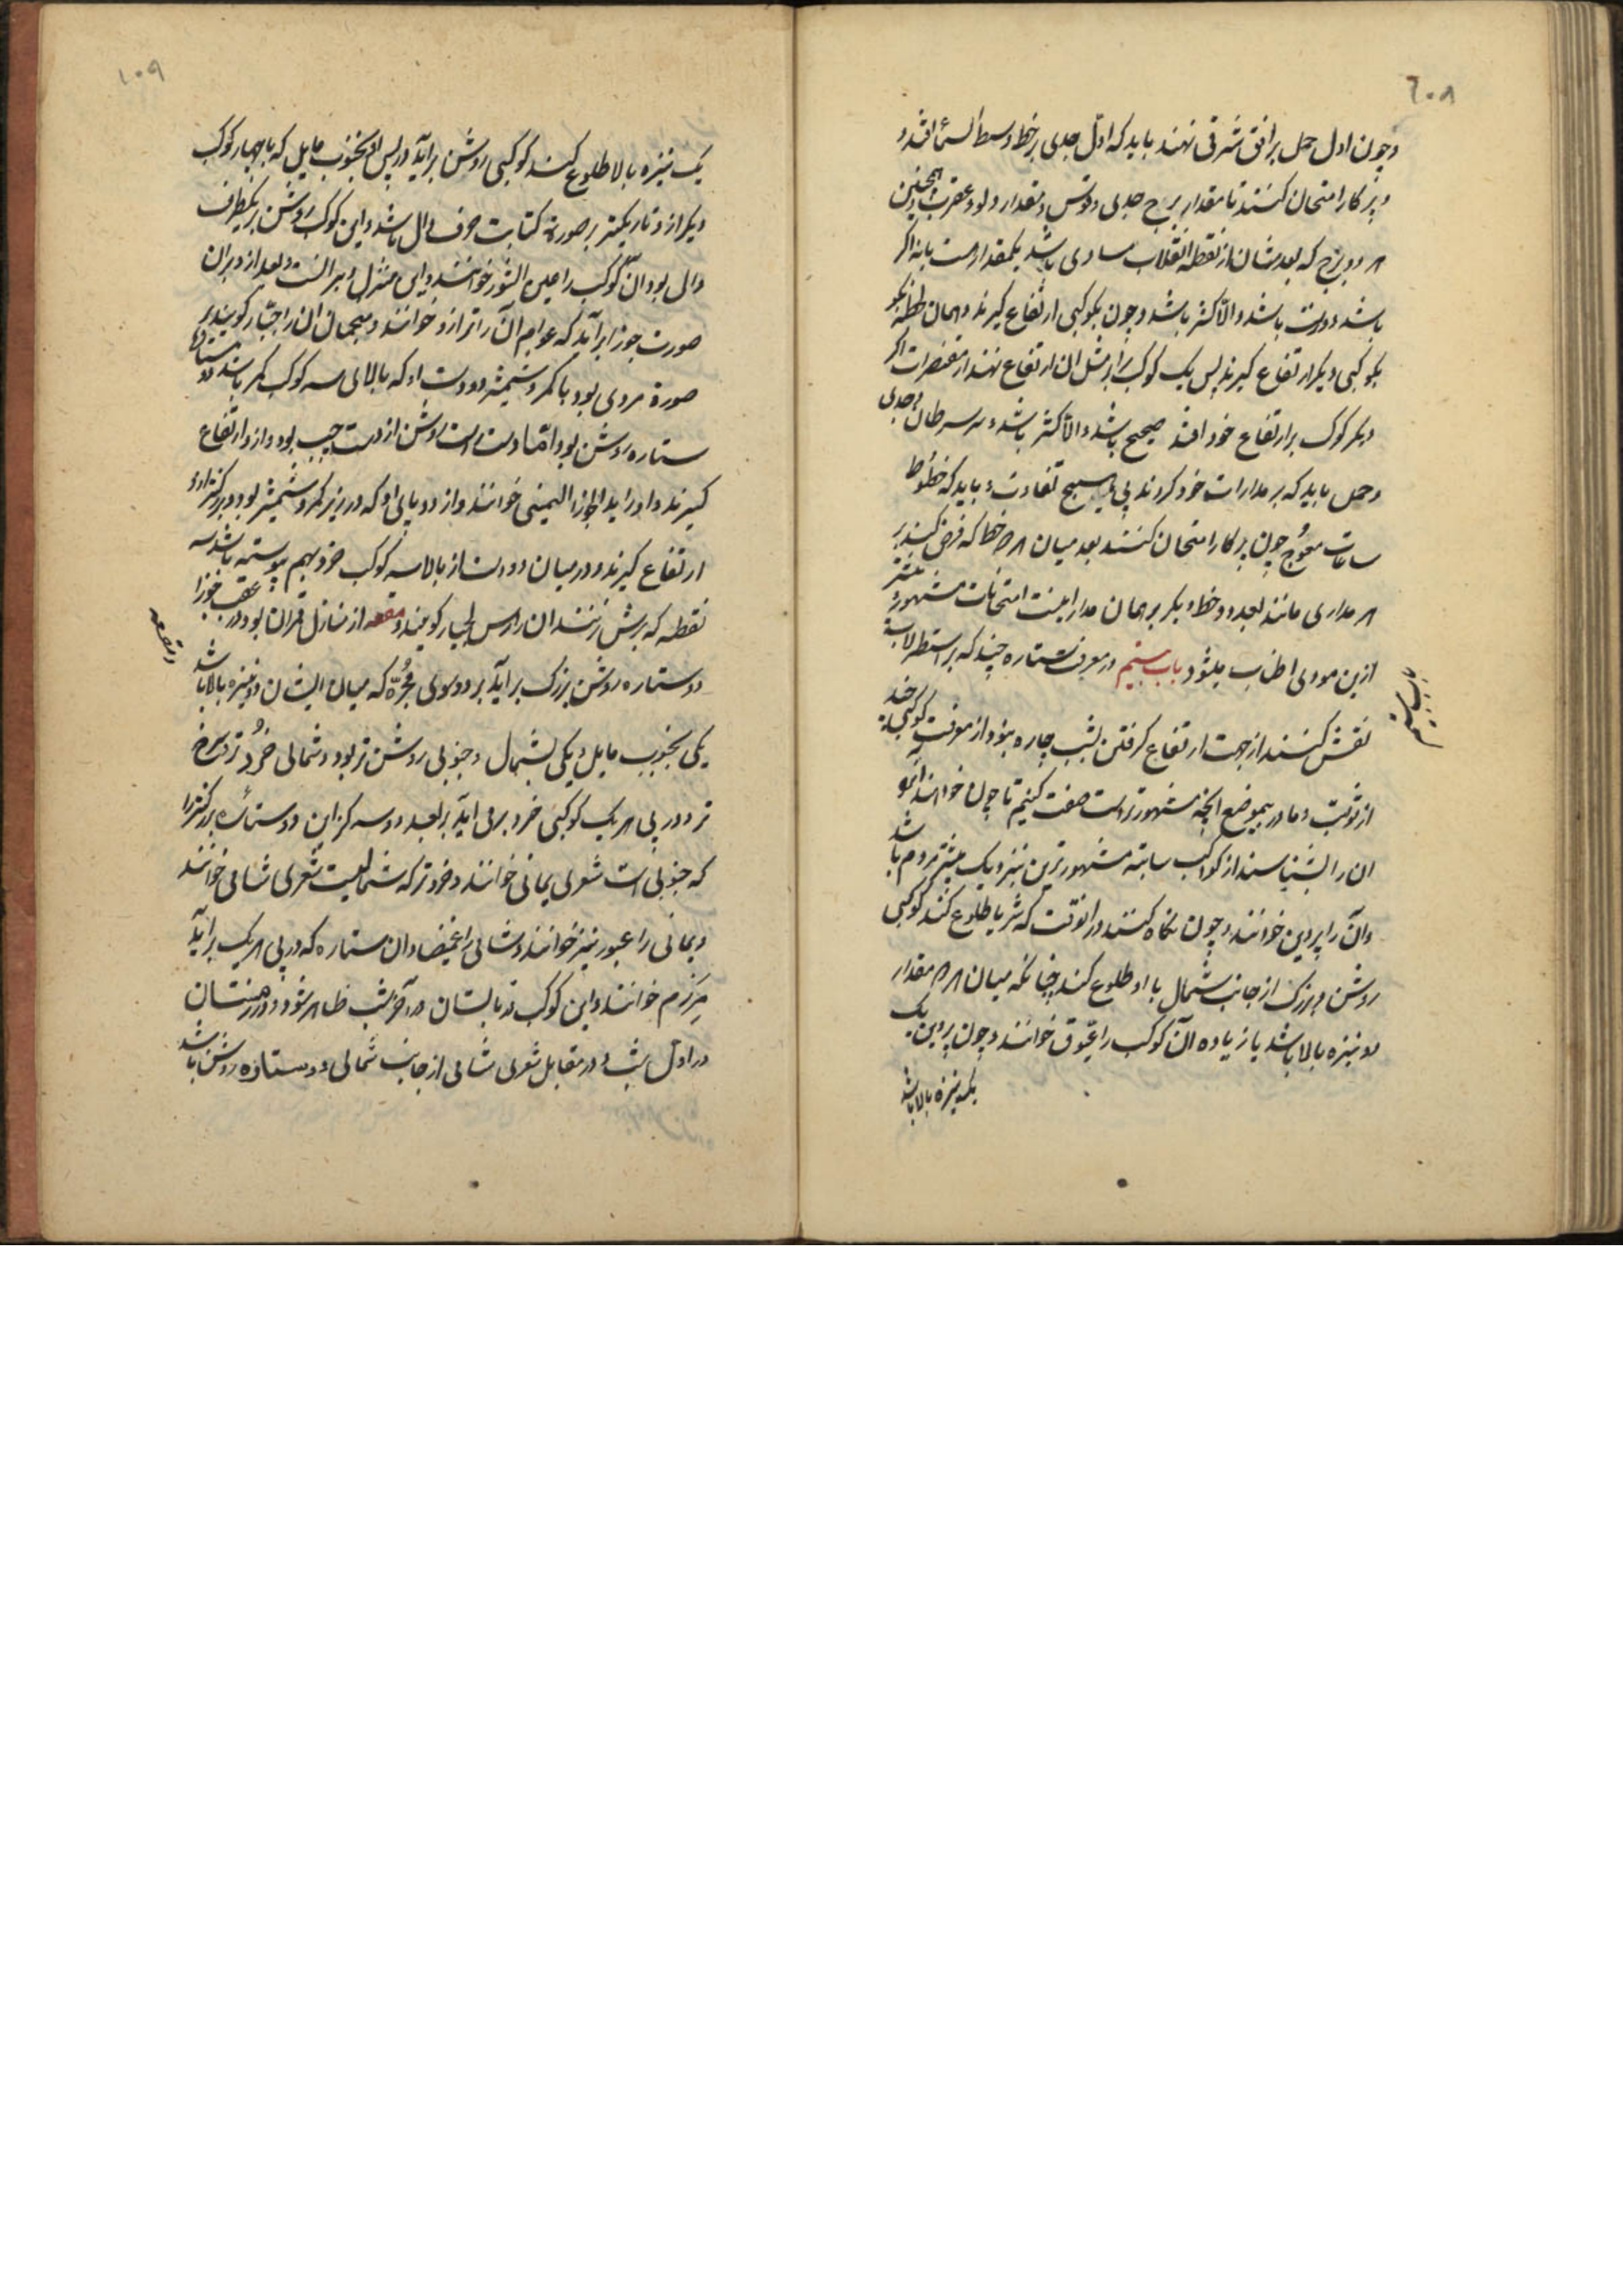 ۶۰۸
و چون اول حمل بر افق شرقی نهند باید که اول جدی بر خط وسط السماء افتد و
و بپرکار امتحان کنند تا مقدار برج جدی و قوس و مقدار دلو و عقرب و همچنین
هر دو برج که بعدشان از نقطه انقلاب مساوی باشد یکمقدار هست یا نه اگر
باشد درست باشد و الا کثر باشد و چون بکوکبی ارتفاع گیرند و همان لحظه
بکوکبی دیگر ارتفاع گیرند پس یک کوکب را بر مثل آن ارتفاع نهند از مقنطرات اگر
دیگر کوکب بر ارتفاع خود افتد صحیح باشد و الا کثر باشد و سر سرطان و جدی
و حمل باید که بر مدارات خود گردند بی هیچ تفاوت و باید که خطوط
ساعات معوج چون بپرکار امتحان کنند بعد میان هر دو خط که فرض کنند بر
هر مداری مانند بعد دو خط دیگر بر همان مدار اینست امتحانات مشهور و بیشتر
ازین مودی اطناب میشود باب بیستم در معرفت ستاره چند که بر اسطرلاب
باب بیستم
نقش کنند از جهت ارتفاع گرفتن بشب چاره نبود از معرفت کوکبی چند
از ثوابت و ما درین موضع آنچه مشهورترست صفت کنیم تا چون خواهند
آن را بشناسند از کواکب ثابته مشهورترین نزدیک بیشتر مردم باشد
و آن را پروین خوانند و چون نگاه کنند در آنوقت که ثریا طلوع کند کوکبی
روشن و بزرگ از جانب شمال با او طلوع کند چنانکه میان هر دو مقدار
دو نیزه بالا باشد یا زیاده آن کوکب را عیوق خوانند و چون پروین یک
یک نیزه بالا باشد
۶۰۹
یک نیزه بالا طلوع کند کوکبی روشن برآید در پس او بجنوب مایل که با چهار کوکب
دیگر از و تاریکتر بر صورة کتابت حرف دال باشد و این کوکب روشن بر یکطرف
دال بود آن کوکب را عین الثور خوانند و این منزل دبرانست و بعد از دبران
صورت جوزا برآید که عوام آن را ترازو خوانند و منجمان آن را جبار گویند بر
صورة مردی بود با کمر و شمشیر و دو دست او که بالای سه کوکب کمر باشد دو ستاره
ستاره روشن بود اما دست راست روشن از دست چپ بود و ازو ارتفاع
گیرند و او را ید الجوزا الیمنی خوانند و از دو پای او که در زیر کمر و شمشیر بود و بزرگترند
ارتفاع گیرند و در میان دو دست از بالا سه کوکب خرد بهم پیوسته باشد سه
نقطه که برش زنند آن را راس الجبار گویند و هقعه از منازل قمر آن بود و در عقب جوزا
و هقعه
دو ستاره روشن بزرگ برآید بر دو سوی مجره که میان ایشان دو نیزه بالا باشد
یکی بجنوب مایل و یکی بشمال و جنوبی روشن تر بود و شمالی خرد تر و سرخ
تر و در پی هر یک کوکبی خرد برمی آید بر بعد دو سه گز این دو ستاره بزرگتر را
که جنوبی است شعری یمانی خوانند و خردتر که شمالیست شعری شامی خوانند
و یمانی را عبور نیز خوانند و شامی را غمیصا و آن ستاره که در پی هر یک برآید
مرزم خوانند و این کوکب در تابستان در آخر شب ظاهر شود و در زمستان
در اول شب و در مقابل شعری شامی از جانب شمالی دو ستاره روشن باشد